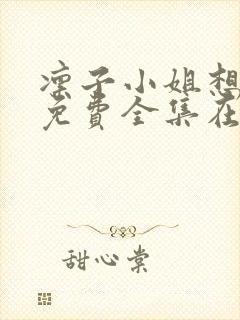 凛子小姐想
免費全集在
甜心棠